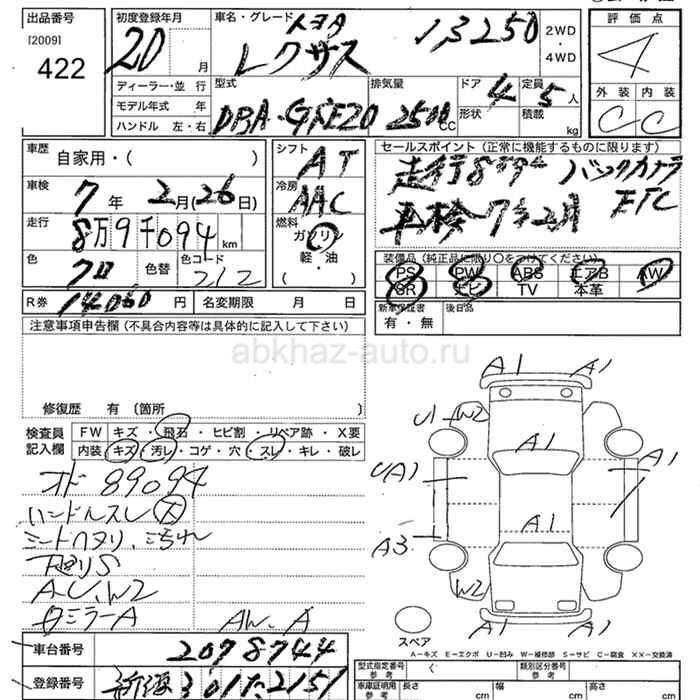 出品番号
[2009]
422
初度登録年月
20 月
車名・グレード
トヨタ
レクサス
IS250
2WD
・
4WD
評価点
4
外装 内装
C C
ディーラー・並行
モデル年式 年
ハンドル 左・右
型式
DBA-GSE20
排気量
2500 CC
ドア 4
形状
定員 5 人
積載 kg
車歴
自家用・( )
車検
7年 2月(26日)
走行
8万9千094 km
色
クロ
色替
色コード
212
R券 14060 円
名変期限 月 日
シフト
AT
冷房
AAC
燃料
ガソリン
軽・油
( )
セールスポイント(正常に機能するものに限ります)
走行8万9千 バックカメラ
車検7年2月 ETC
装備品(純正品に限り○をつけてください)
PS PW ABS エアB AW
SR ナビ TV 本革
新車保証書
有・無
後日品
注意事項申告欄(不具合内容等は具体的に記入して下さい)
修復歴 有〔箇所
検査員
記入欄
FW キズ・飛石・ヒビ割・リペア跡・X要
内装 キズ・汚レ・コゲ・穴・スレ・キレ・破レ
オド 89094
ハンドルスレ(大)
シートヘタリ、汚れ
下回りS
A.U.W2
ミラーA AW.A
車台番号 2078744
登録番号 301 2151
A1 A1
U1 W2
A1
U A1
A1
A3
A1
W2
A1 A1
スペア
A-キズ E-エクボ U-凹み W-補修跡 S-サビ C-腐食 XX-交換済
型式指定番号
参考
類別区分番号
参考
車庫証明用
参考
長さ cm
幅 cm
高さ cm
abkhaz-auto.ru